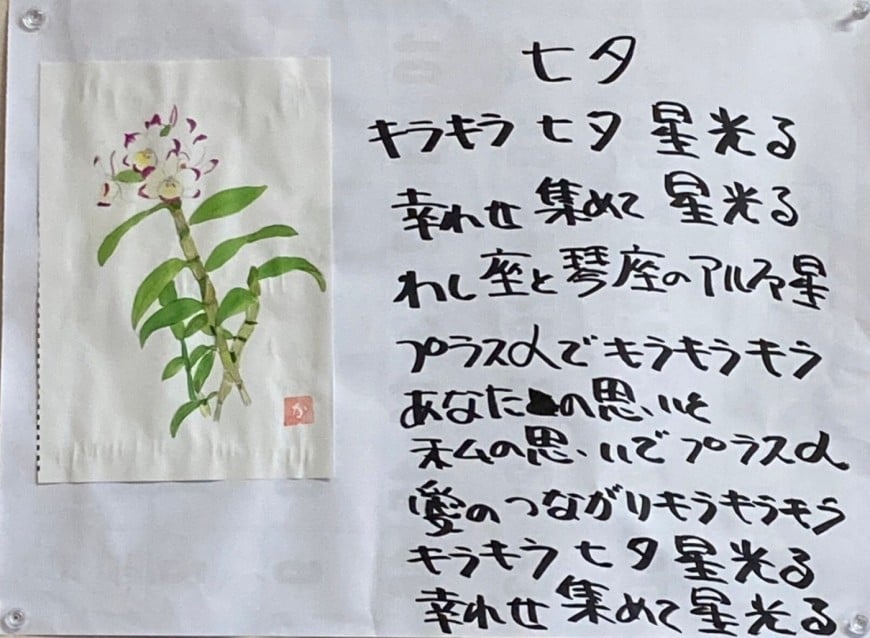 七夕
キラキラ七夕 星光る
幸れせ 集めて 星光る
わし座と琴座のアルファ星
プラスαでキラキラキラ
あなたの思いと
私の思いでプラスα
愛のつながりキラキラキラ
キラキラ七夕 星光る
幸れせ 集めて 星光る
か